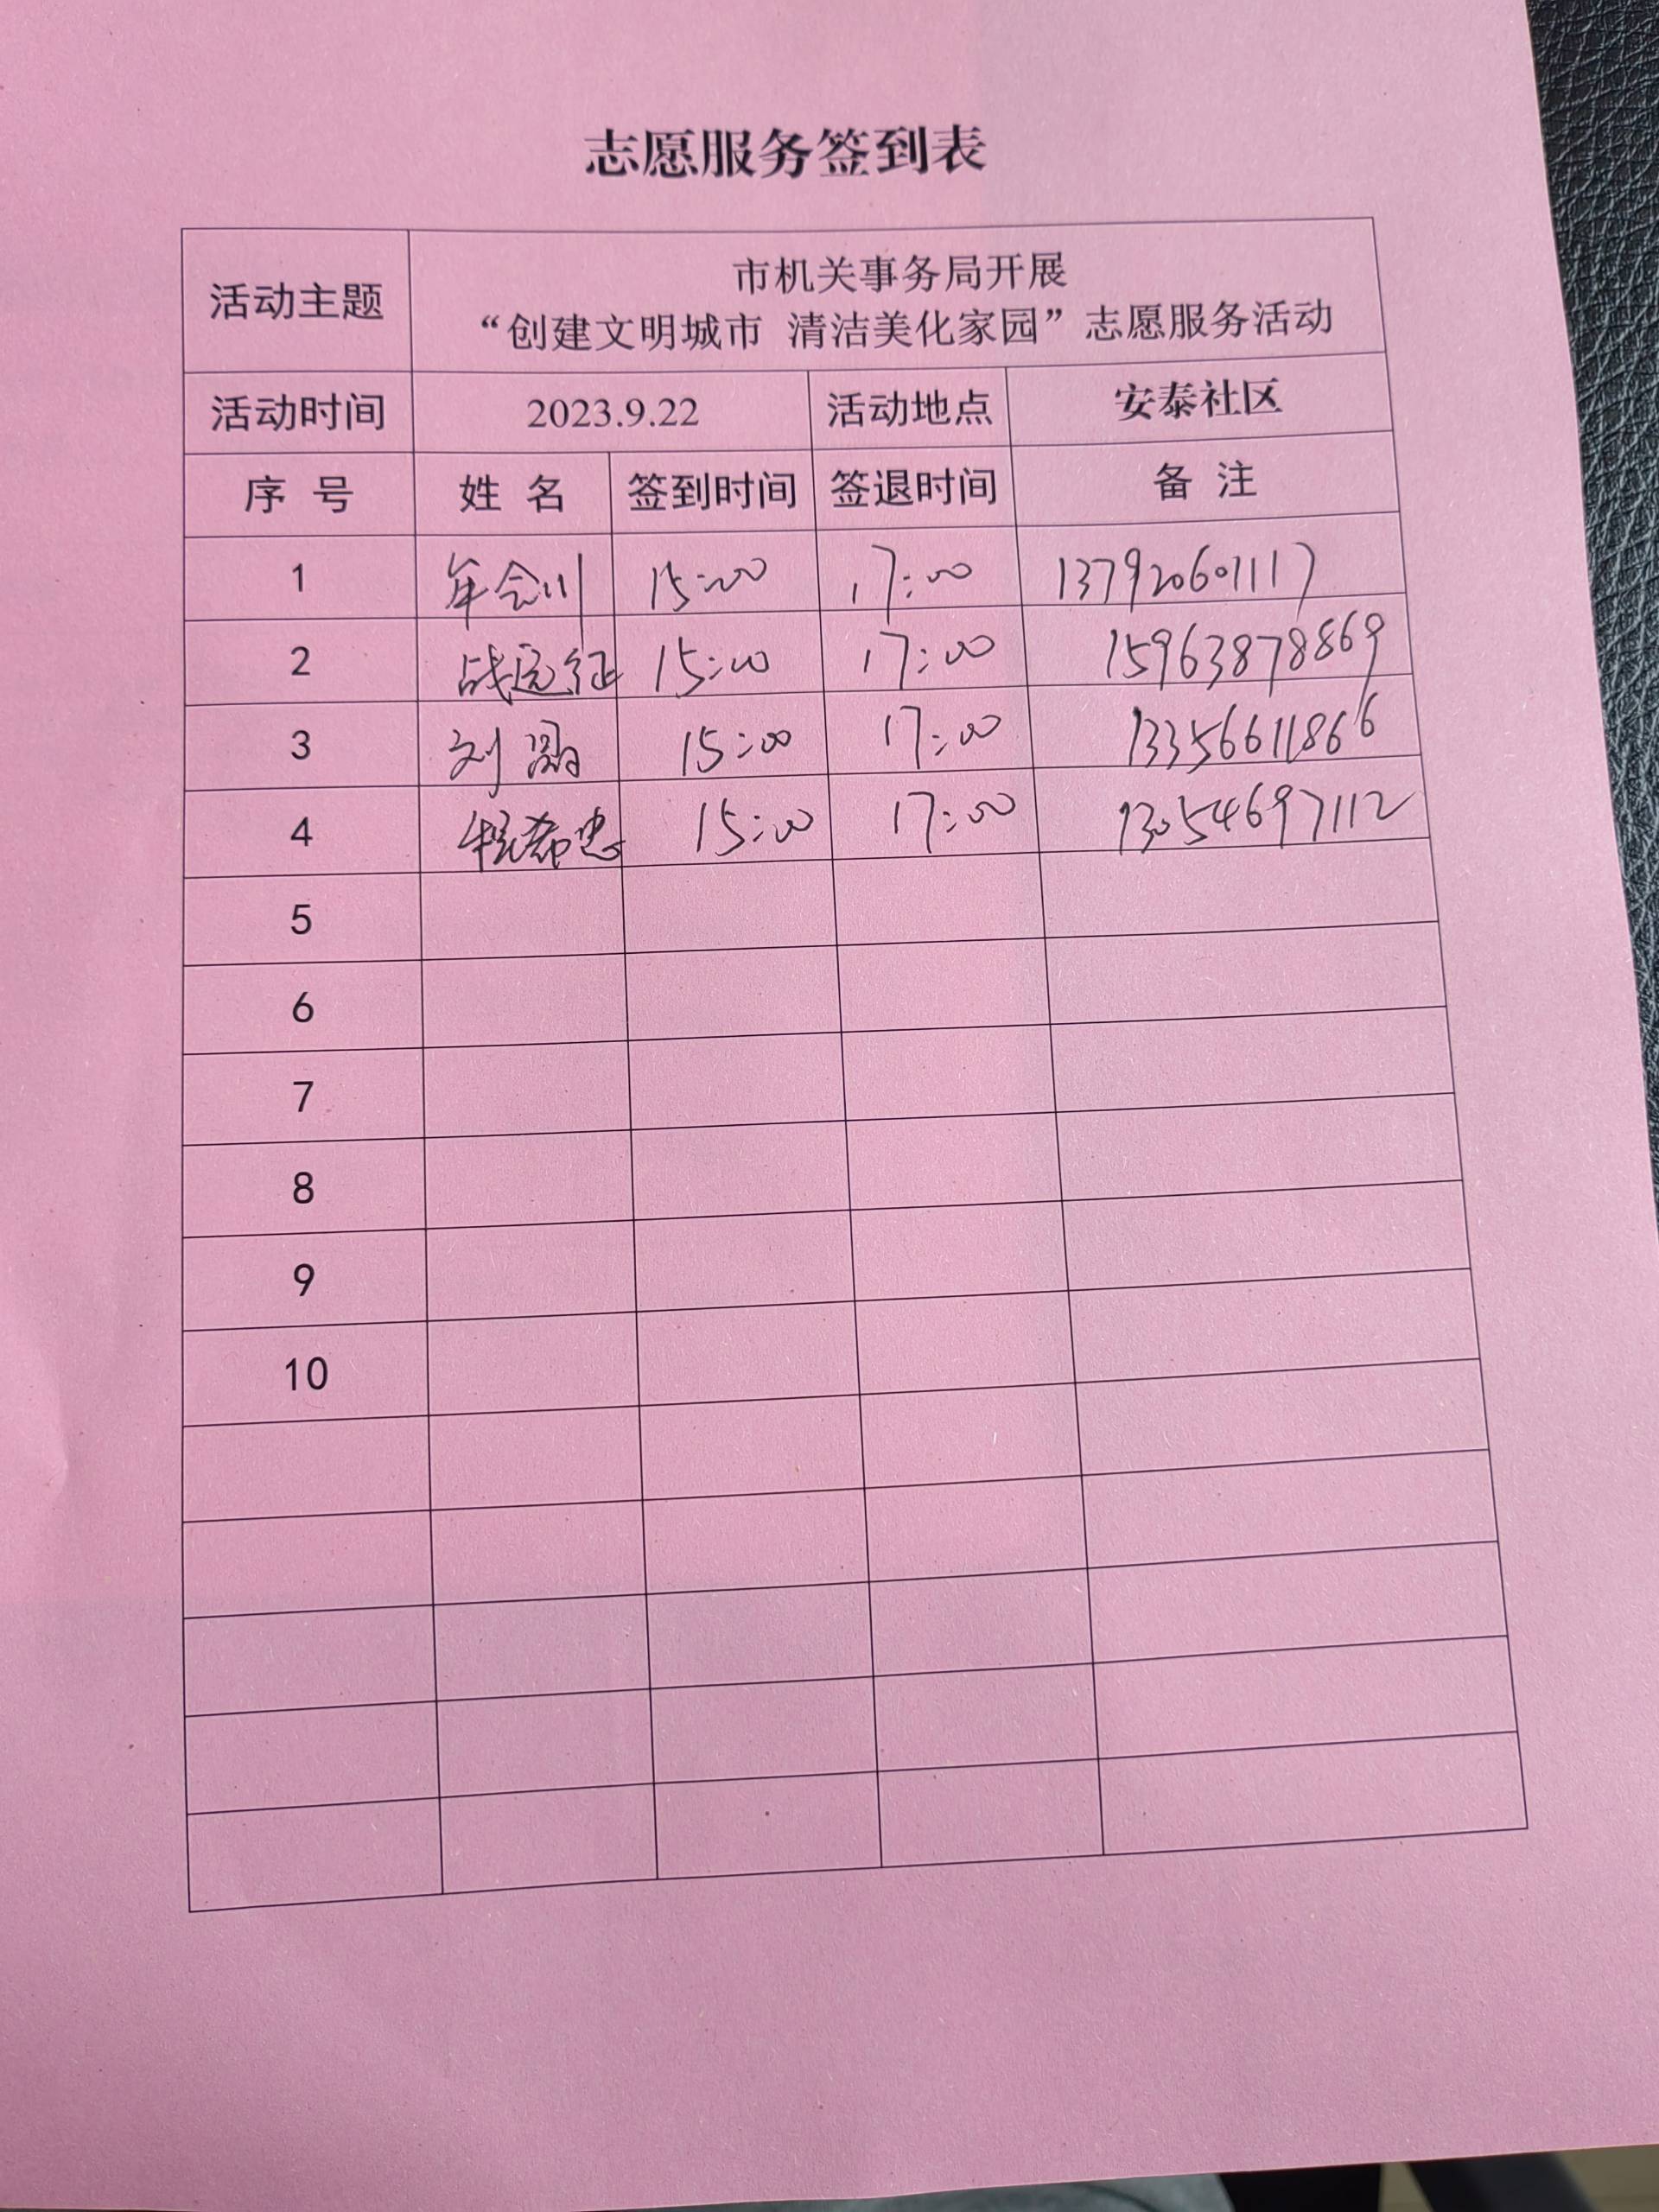 志愿服务签到表
活动主题
市机关事务局开展
“创建文明城市 清洁美化家园”志愿服务活动
活动时间 2023.9.22 活动地点 安泰社区
序 号 姓 名 签到时间 签退时间 备 注
1 年会川 15:00 17:00 137920601117
2 战远征 15:00 17:00 15963878869
3 刘 15:00 17:00 13356611866
4 程希忠 15:00 17:00 13054697112
5
6
7
8
9
10